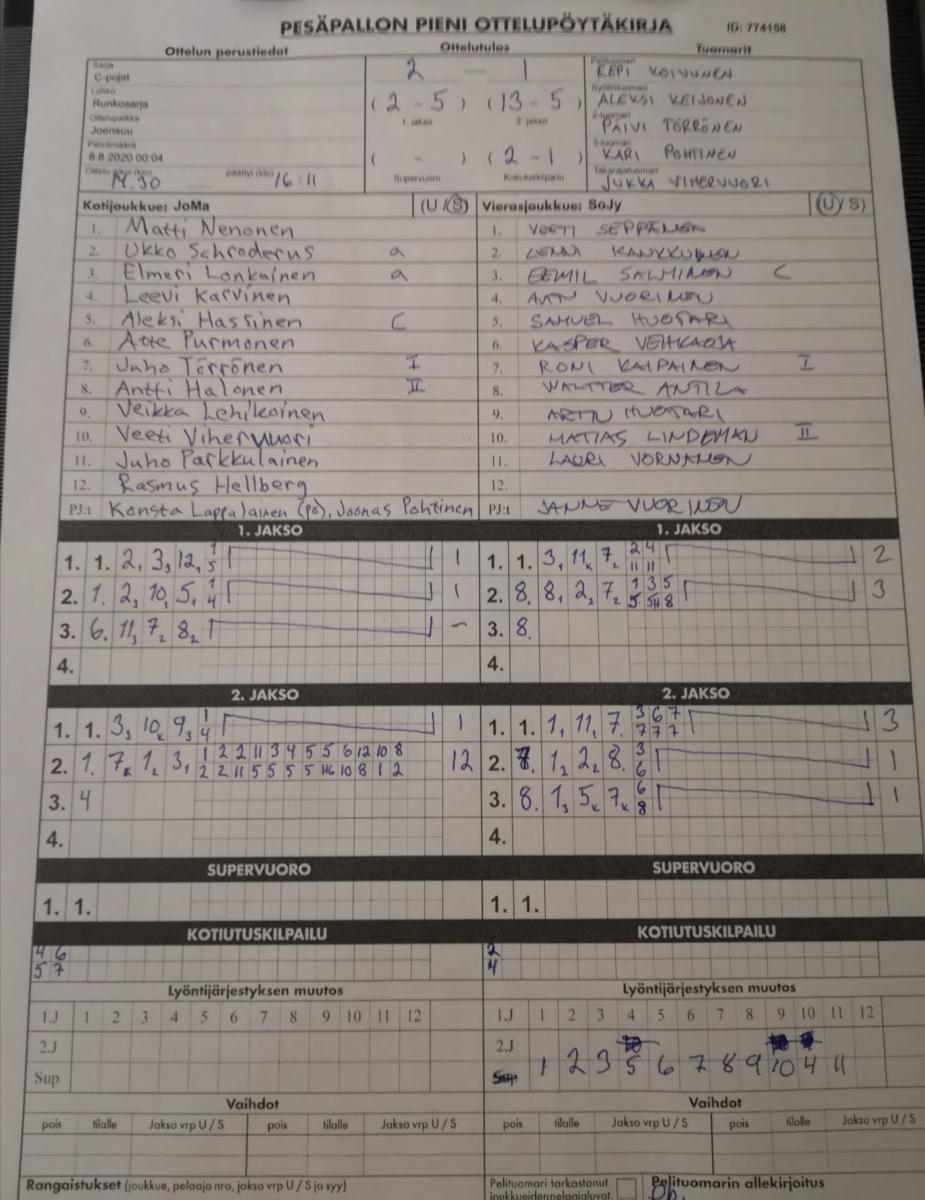 PESÄPALLON PIENI OTTELUPÖYTÄKIRJA ID: 774158
Ottelun perustiedot Ottelutulos Tuomarit
Sarja
C-pojat
Lohko
Runkosarja
Ottelupaikka
Joensuu
Päivämäärä
8.8.2020 00:04
päättyi (klo) 16:11
2 – 1
(2 - 5) (13 - 5)
1 jakso 2 jakso
( - ) (2 - 1)
Supervuoro Kotiutuskilpailu
EEPI KOIVUNEN
ALEKSI KEIJONEN
2-tuomari
PÄIVI TÖRRÖNEN
3-tuomari
KARI POHTINEN
Takarajatuomari
JUKKA VIHERVUORI
Kotijoukkue: JoMa (U / S) Vierasjoukkue: SoJy (U / S)
1. Matti Nenonen 1. VEETI SEPPÄNEN
2. Ukko Schroderus a 2. LENNI KANKKUNEN
3. Elmeri Lonkainen a 3. EEMIL SALMINEN C
4. Leevi Karvinen 4. VUORINEN
5. Aleksi Hassinen C 5. SAMUEL HUOTARI
6. Atte Purmonen 6. KASPER
7. Juho Törrönen I 7. RONI KAIPAINEN I
8. Antti Halonen II 8. WALTTER ANTILA
9. Veikka Lehikoinen 9. HUOTARI
10. Veeti Vihervuori 10. MATIAS LINDEMAN II
11. Juho Parkkulainen 11. LAURI VORNANEN
12. Rasmus Hellberg 12.
PJ:t Konsta Lappalainen (po), Joonas Pohtinen PJ:t JANNE VUORINEN
1. JAKSO 1. JAKSO
1. 1. 2, 3, 12, 1 5 1 1. 1. 3, 11, 7, 2 4 11 11 2
2. 1. 2, 10, 5, 1 4 1 2. 8. 8, 2, 7, 1 3 5 3
3. 6. 11, 7, 8, – 3. 8.
4. 4.
2. JAKSO 2. JAKSO
1. 1. 3, 10, 9, 1 4 1 1. 1. 1, 11, 7. 3 6 7 7 7 7 3
2. 1. 7, 1, 3, 1 2 2 11 3 4 5 5 6 12 10 8 12 2. 1, 2, 8. 3 6 1
2 2 11 5 5 5 5 10 8 1 2
3. 4 3. 8. 1, 5, 7, 6 8 1
4. 4.
SUPERVUORO SUPERVUORO
1. 1. 1. 1.
KOTIUTUSKILPAILU KOTIUTUSKILPAILU
4 6 2
5 7 4
Lyöntijärjestyksen muutos Lyöntijärjestyksen muutos
1.J 1 2 3 4 5 6 7 8 9 10 11 12 1.J 1 2 3 4 5 6 7 8 9 10 11 12
2.J 2.J
Sup Sup 1 2 3 5 6 7 8 9 10 4 11
Vaihdot Vaihdot
pois tilalle Jakso vrp U / S pois tilalle Jakso vrp U / S pois tilalle Jakso vrp U / S pois tilalle Jakso vrp U / S
Rangaistukset (joukkue, pelaaja nro, jakso vrp U / S ja syy) Pelituomari tarkastanut Pelituomarin allekirjoitus
joukkueidenpelaajaluvat.